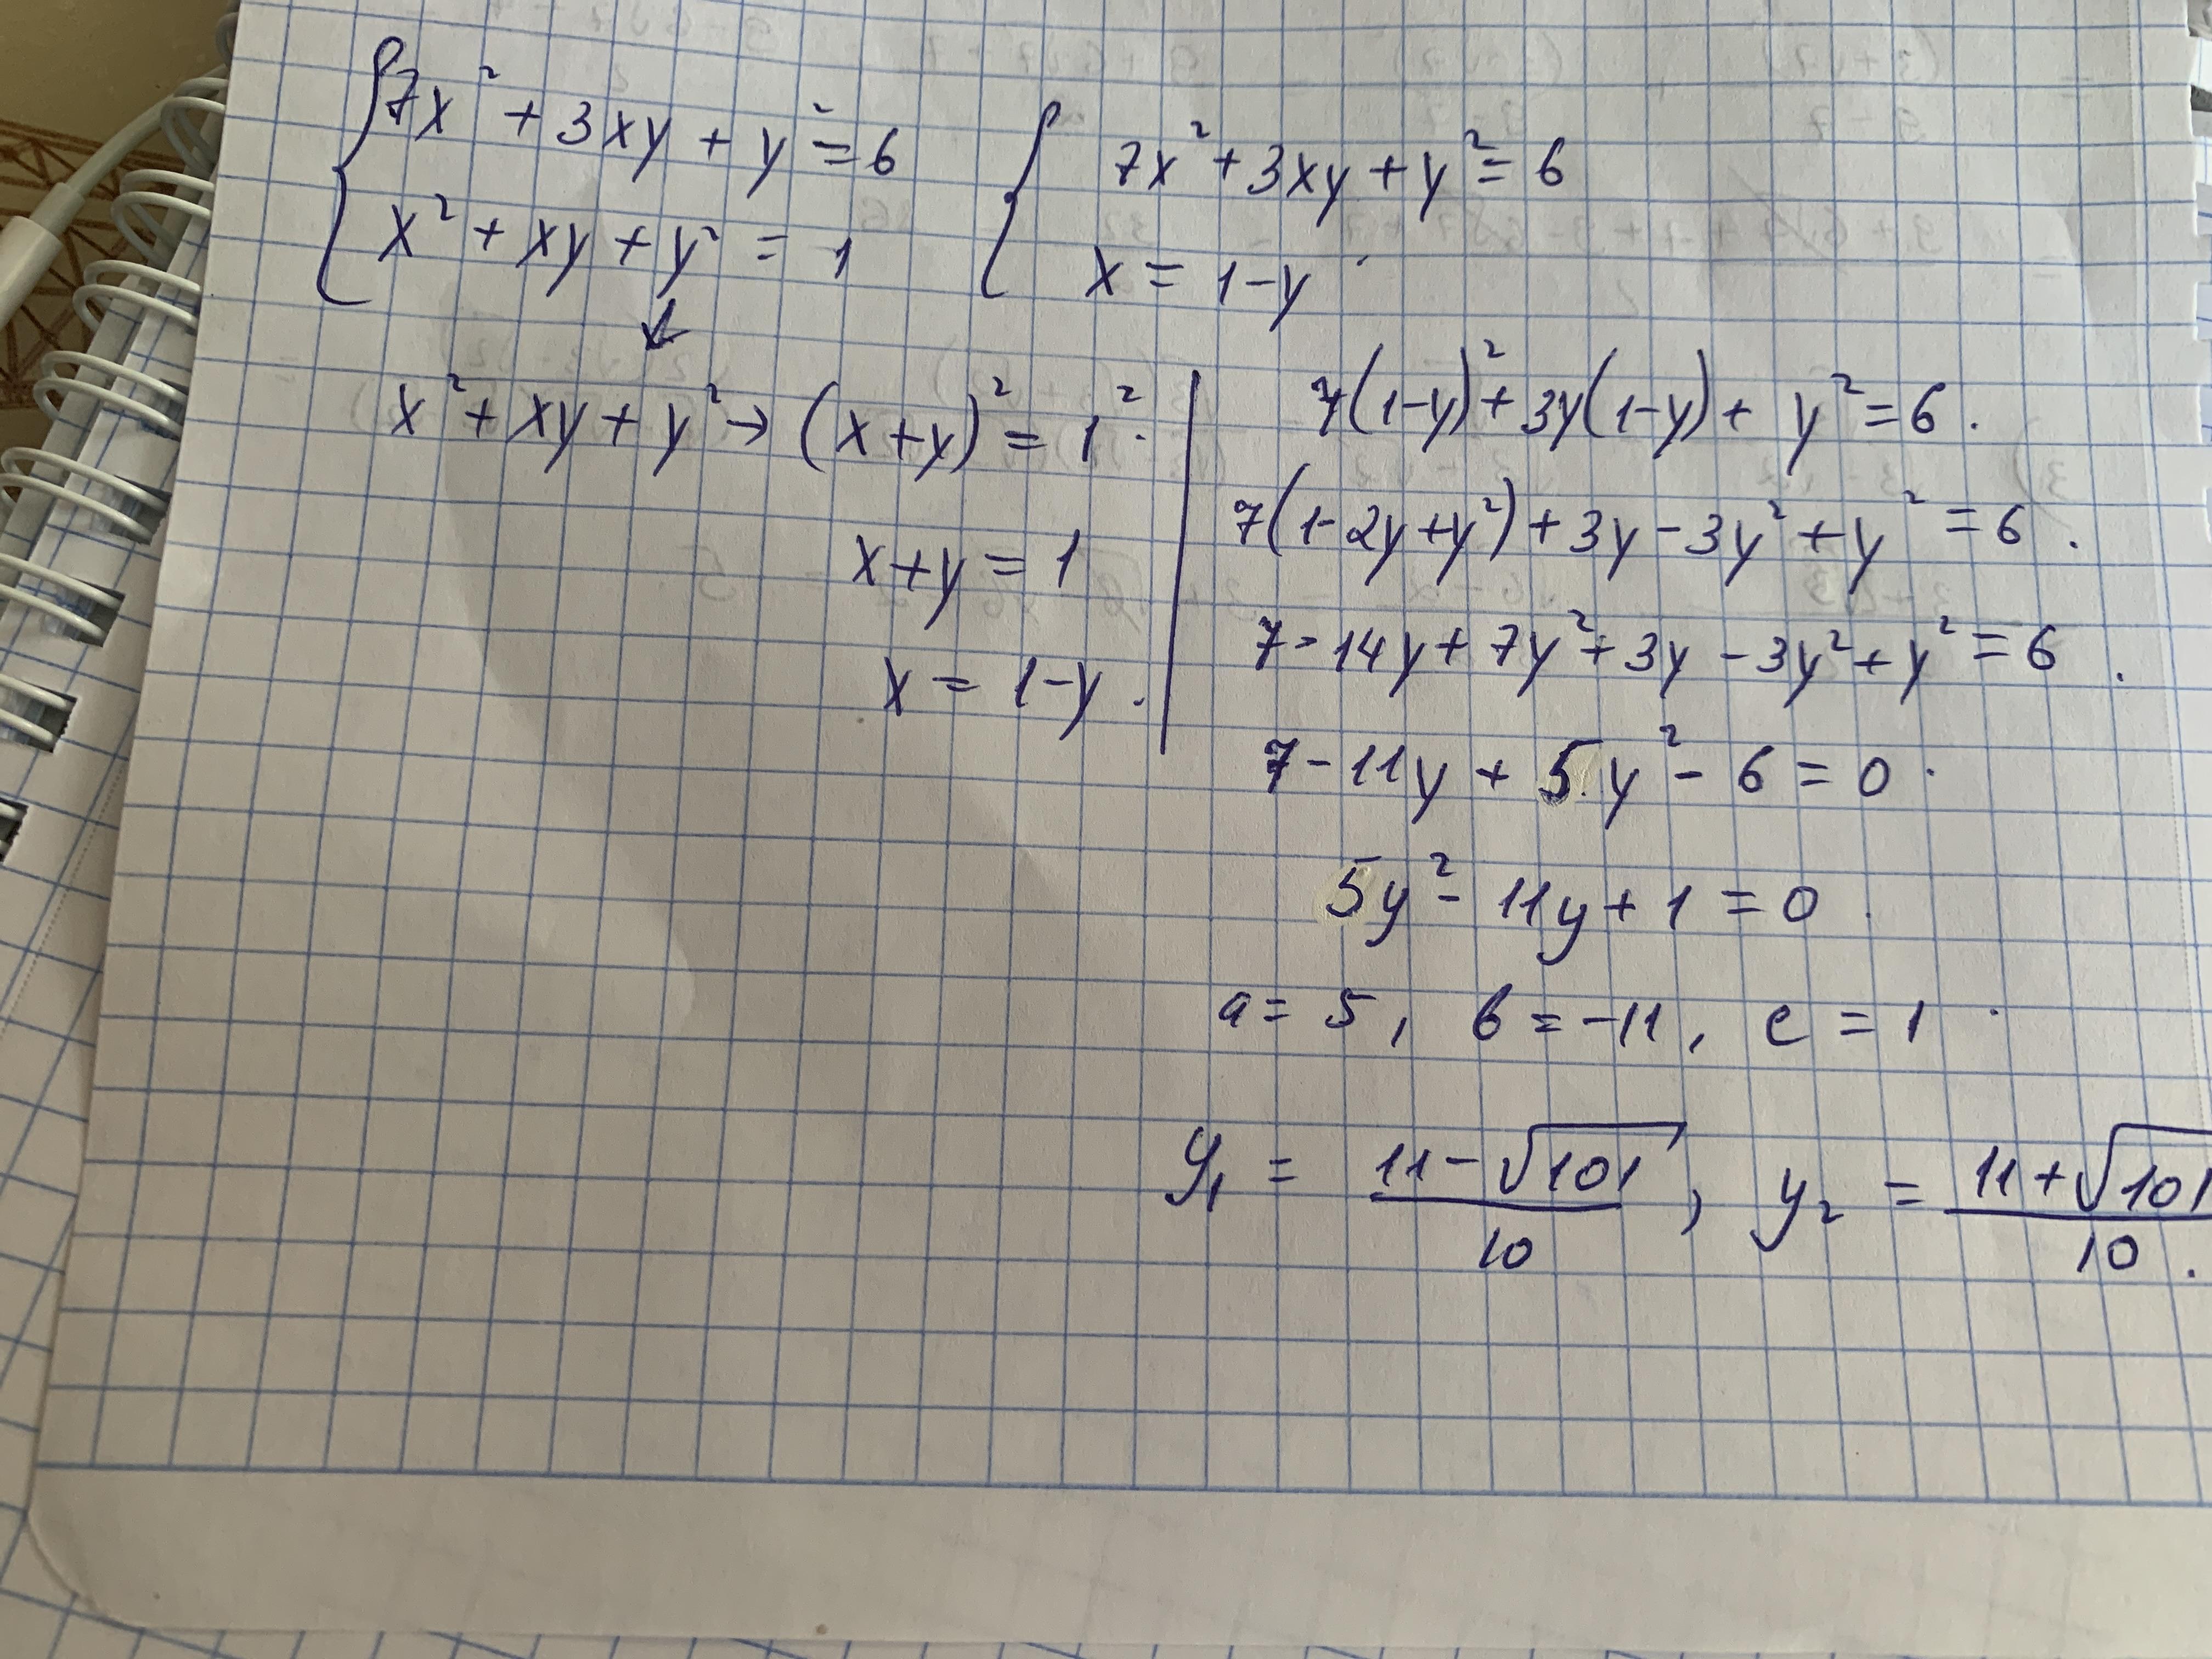 7x² + 3xy + y² = 6
x² + xy + y² = 1
x² + xy + y² → (x+y)² = 1².
x+y = 1
x = 1-y.
7x² + 3xy + y² = 6
x = 1-y.
7(1-y)² + 3y(1-y) + y² = 6.
7(1-2y+y²) + 3y - 3y² + y² = 6.
7-14y + 7y² + 3y - 3y² + y² = 6.
7-11y + 5y² - 6 = 0.
5y² - 11y + 1 = 0.
a = 5, b = -11, c = 1.
y₁ = (11-√101)/10, y₂ = (11+√101)/10.